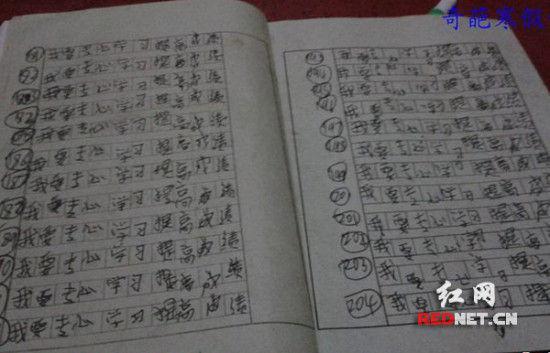 奇葩寒假
我要专心学习提高成绩
我要专心学习提高成绩
我要专心学习提高成绩
我要专心学习提高成绩
我要专心学习提高成绩
我要专心学习提高成绩
我要专心学习提高成绩
我要专心学习提高成绩
我要专心学习提高成绩
我要专心学习提高成绩
我要专心学习提高成绩
我要专心学习提高成绩
193 我要专心学习提高成绩
194 我要专心学习提高成绩
195 我要专心学习提高成绩
我要专心学习提高成绩
197 我要专心学习提高成绩
198 我要专心学习提高成绩
199 我要专心学习提高成绩
我要专心学习提高成绩
201 我要专心学习提高成
202 我要专心学习提高成
203 我要专心学习提高
204 我要专心学习提
红网
REDNET.CN